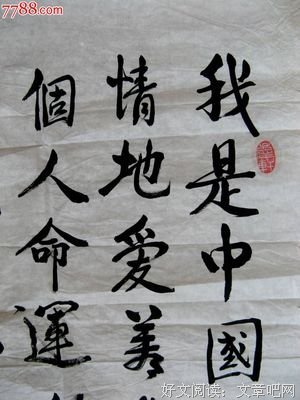 7788.com
我是中國
情地爱着
個人命運
好文阅读：文章吧网